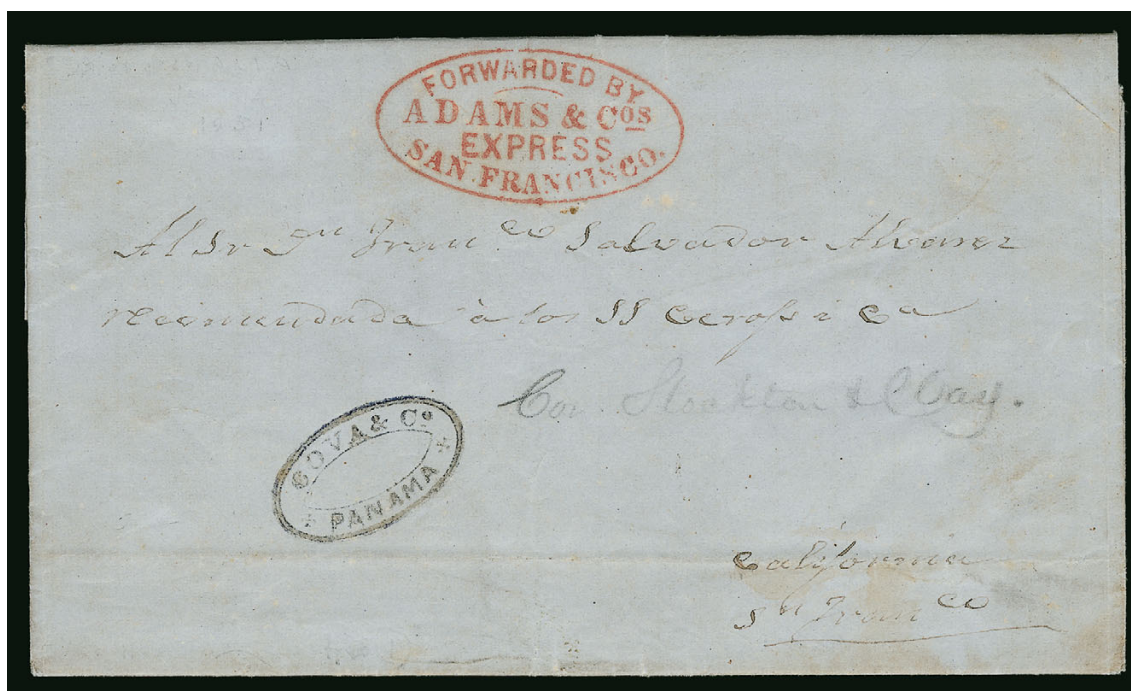 FORWARDED BY
ADAMS & Cos
EXPRESS
SAN FRANCISCO.
Al Sr Dn Franco Salvador Alvarez
recomendada à los SS
Cor Stockton & Clay.
COVA & Co
PANAMA
California
Sn Franco